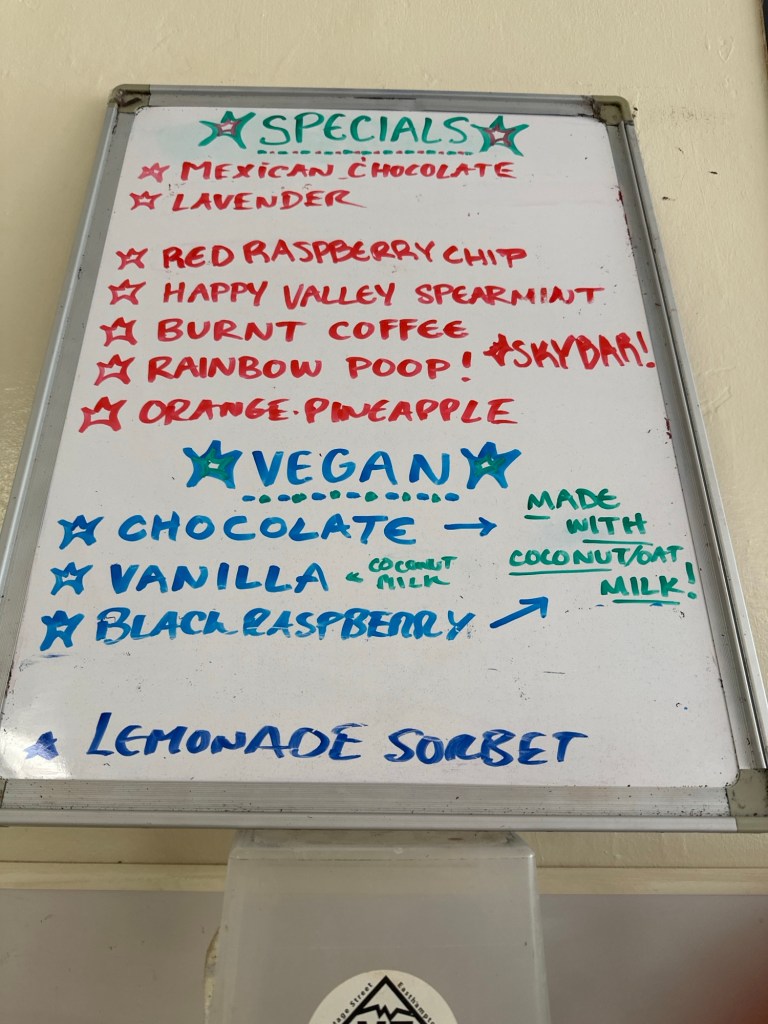 SPECIALS
MEXICAN CHOCOLATE
LAVENDER
RED RASPBERRY CHIP
HAPPY VALLEY SPEARMINT
BURNT COFFEE
RAINBOW POOP!
SKYBAR!
ORANGE·PINEAPPLE
VEGAN
CHOCOLATE →
VANILLA
COCONUT
MILK
BLACK RASPBERRY →
MADE
WITH
COCONUT/OAT
MILK!
LEMONADE SORBET